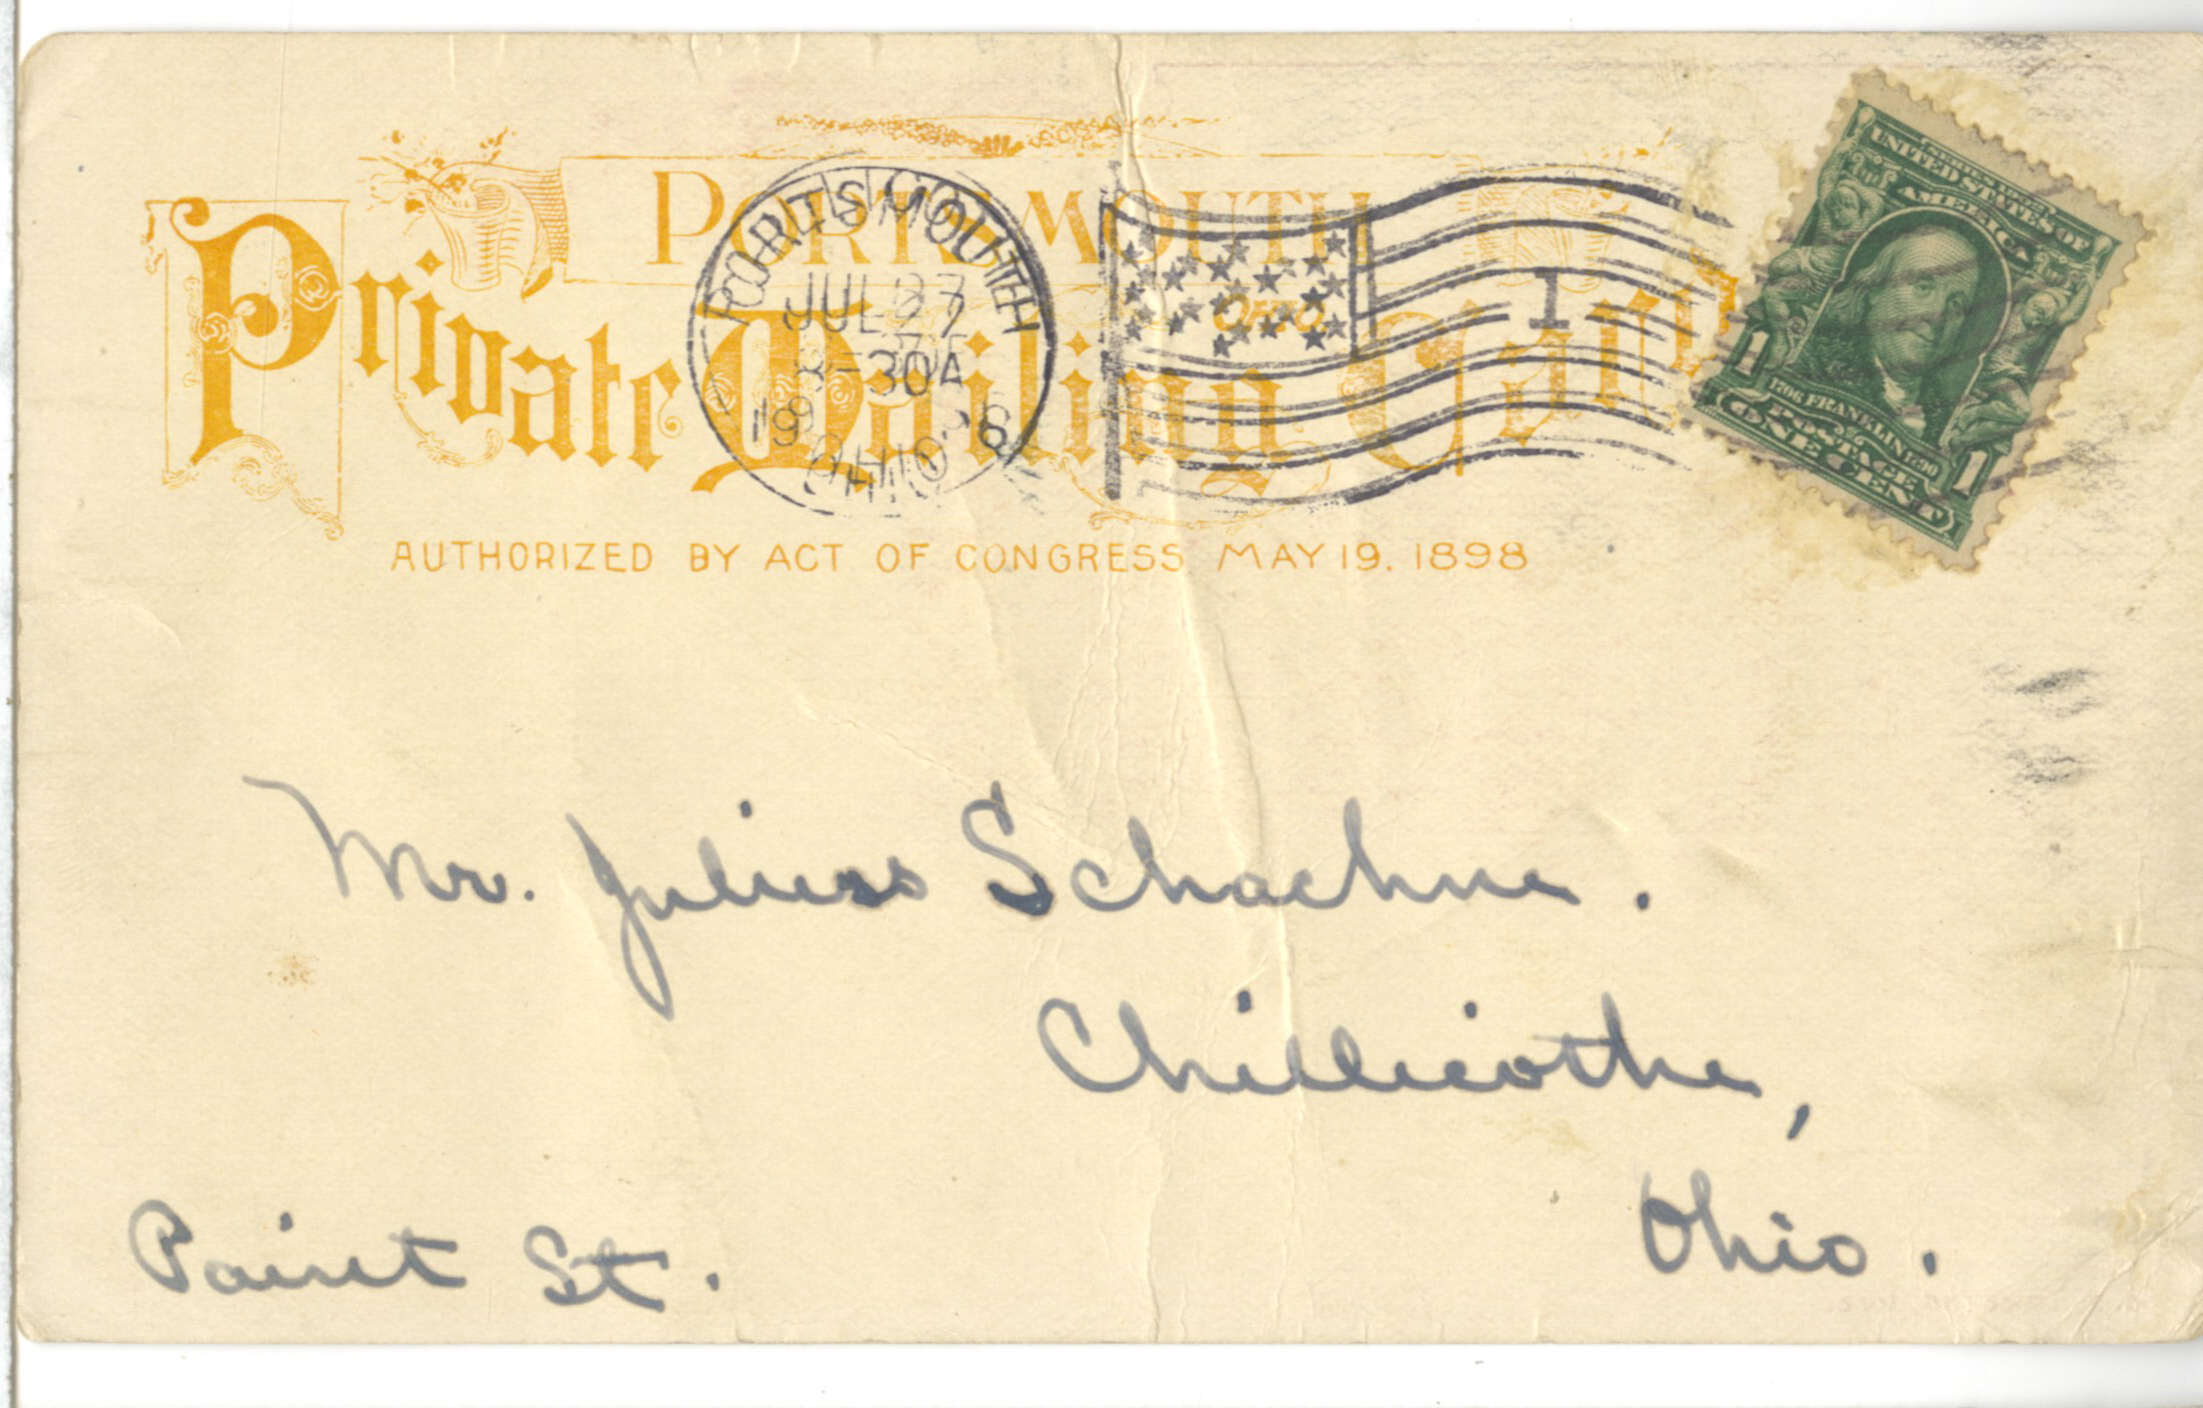 PORTSMOUTH
OHIO
Private Mailing Card
AUTHORIZED BY ACT OF CONGRESS MAY 19, 1898
PORTSMOUTH
JUL 27
30 A
OHIO
1
UNITED STATES OF
AMERICA
1706 FRANKLIN 1790
POSTAGE
1 ONE CENT 1
Mr. Julius Schachne.
Chillicothe,
Ohio.
Paint St.